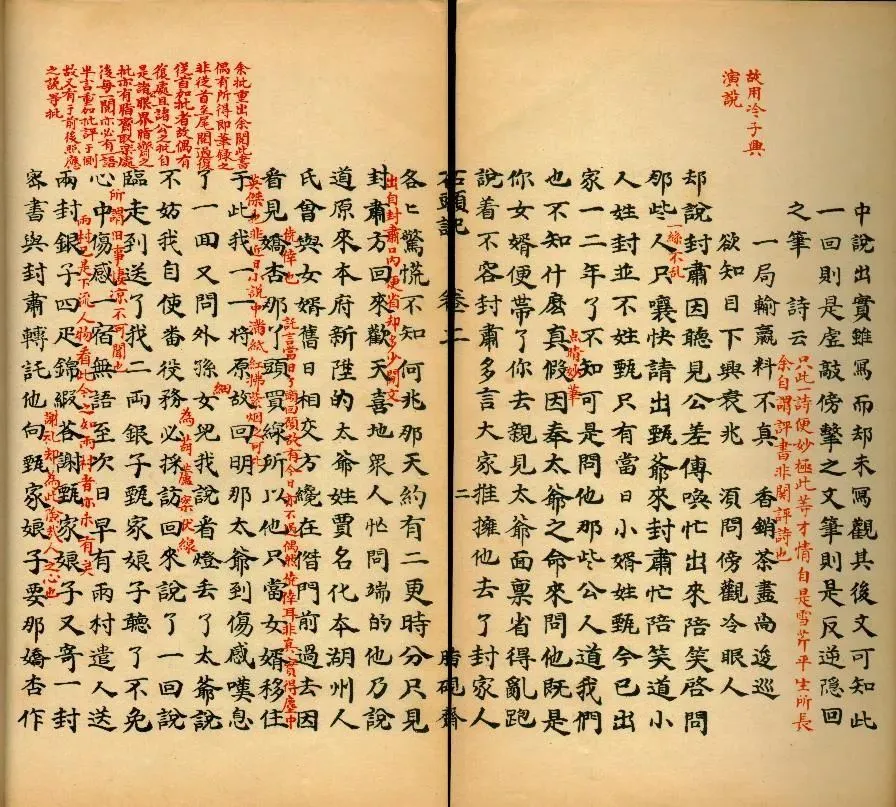 故用冷子興
演說
中說出實雖寫而却未寫觀其後文可知此
一回則是虛敲傍擊之文筆則是反逆隱回
之筆 詩云
只此一詩便妙極此等才情自是雪芹平生所長
余自謂評書非關評詩也
一局輸贏料不真 香銷茶盡尚逡巡
欲知目下興衰兆 須問傍觀冷眼人
却說封肅因聽見公差傳喚忙出來陪笑啓問
一絲不亂
那些人只嚷快請出甄爺來封肅忙陪笑道小
人姓封並不姓甄只有當日小婿姓甄今已出
家一二年了不知可是問他那些公人道我們
點睛妙筆
也不知什麽真假因奉太爺之命來問他既是
你女婿便帶了你去親見太爺面禀省得亂跑
說着不容封肅多言大家推擁他去了封家人
石頭記 卷二 二 脂硯齋
各各驚慌不知何兆那天約有二更時分只見
出自封肅口內便省却多少閒文
封肅方回來歡天喜地衆人忙問端的他乃說
道原來本府新陞的太爺姓賈名化本湖州人
氏曾與女婿舊日相交方纔在偺門前過去因
僥倖也
託言當日丫頭回顧故有今日亦不過偶然僥倖耳非真實得塵中
看見嬌杏那丫頭買線所以他只當女婿移住
英傑也非近日小說中滿紙紅拂紫烟之可比
余批重出余閱此書
偶有所得即筆錄之
非從首至尾閱過復
從首加批者故偶有
復處且諸公之批自
是諸公眼界脂齋之
批亦有脂齋取樂處
後每一閱亦必有一語
半言重加批評于側
故又有于前後照應
之說等批
于此我一一將原故回明那太爺到傷感嘆息
細
了一回又問外孫女兒我說看燈丟了太爺說
為葫蘆案伏線
不妨我自使番役務必採訪回來說了一回話
臨走到送了我二兩銀子甄家娘子聽了不免
所謂旧事凄凉不可聞也
心中傷感一宿無語至次日早有雨村遣人送
雨村已是下流人物看此今之如雨村者亦未有矣
兩封銀子四疋錦緞答謝甄家娘子又寄一封
謝礼却為此險哉人之心也
密書與封肅轉託他向甄家娘子要那嬌杏作